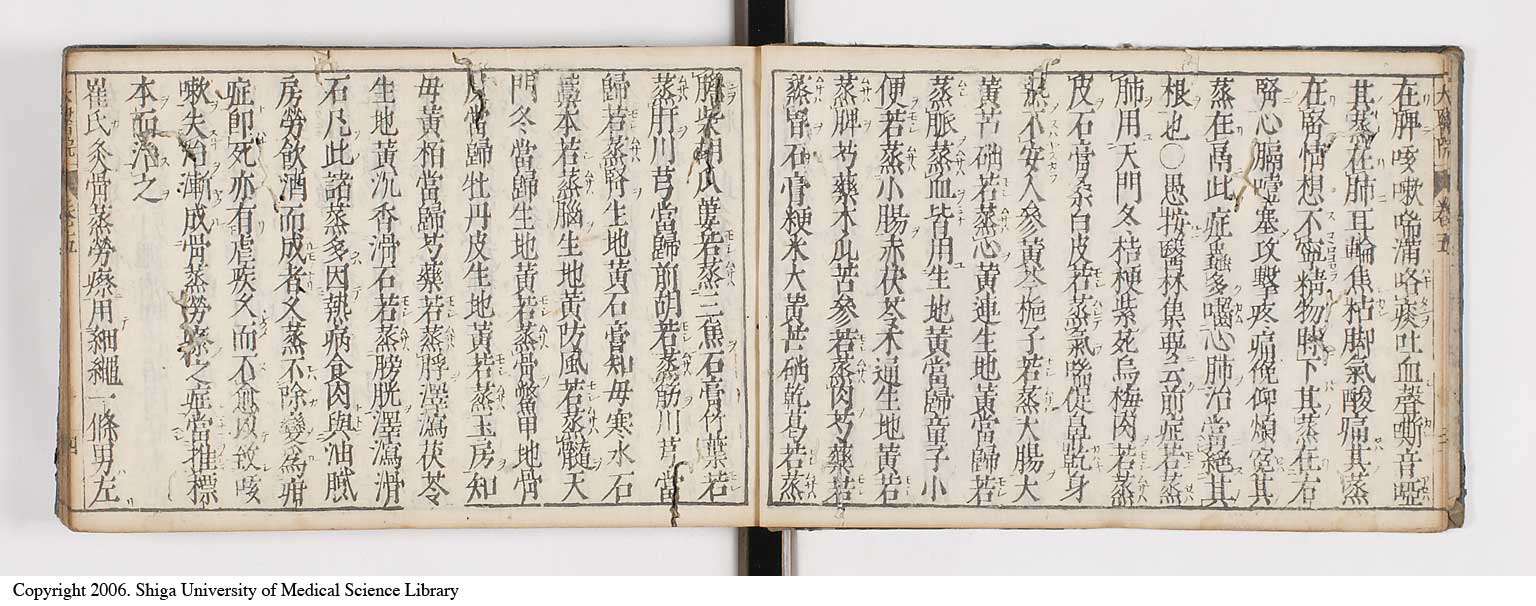 在脾咳嗽喘滿咯痰吐血聲嘶音啞
其蒸在肺耳輪焦枯脚氣酸痛其蒸
在腎情想不寧精物時下其蒸在右
腎心膈噎塞攻擊疼痛俛仰煩寃其
蒸在鬲此症蟲多囓心肺治當絶其
根也〇愚按醫林集要云前症若蒸
肺用天門冬桔梗紫苑烏梅肉若蒸
皮石膏桑白皮若蒸氣喘促鼻乾身
熱不安人參黃芩梔子若蒸大腸大
黃芒硝若蒸心黃連生地黃當歸若
蒸脈蒸血皆用生地黃當歸童子小
便若蒸小腸赤茯苓木通生地黃若
蒸脾芍藥木瓜苦參若蒸肉芍藥若
蒸胃石膏粳米大黃芒硝乾葛若蒸
膽柴胡瓜蔞若蒸三焦石膏竹葉若
蒸肝川芎當歸前胡若蒸筋川芎當
歸若蒸腎生地黃石膏知母寒水石
藁本若蒸腦生地黃防風若蒸髓天
門冬當歸生地黃若蒸骨鱉甲地骨
皮當歸牡丹皮生地黃若蒸玉房知
母黃栢當歸芍藥若蒸脬澤瀉茯苓
生地黃沉香滑石若蒸膀胱澤瀉滑
石凡此諸蒸多因熱病食肉與油膩
房勞飮酒而成者久蒸不除變爲疳
症卽死亦有瘧疾久而不愈以致咳
嗽失治漸成骨蒸勞瘵之症當推標
本而治之
崔氏灸骨蒸勞瘵用細繩一條男左
大醫院 卷五